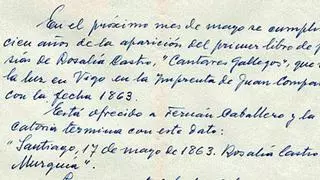 En el próximo mes de mayo se cumplir
cien años de la aparición del primer libro de po
sías de Rosalía Castro, "Cantares Gallegos", que
la luz en Vigo en la Imprenta de Juan Compa
con la fecha 1863.
Está ofrecido a Fernán Caballero y la
catoria termina con este dato:
"Santiago, 17 de mayo de 1863. Rosalía Castro
Murguía".